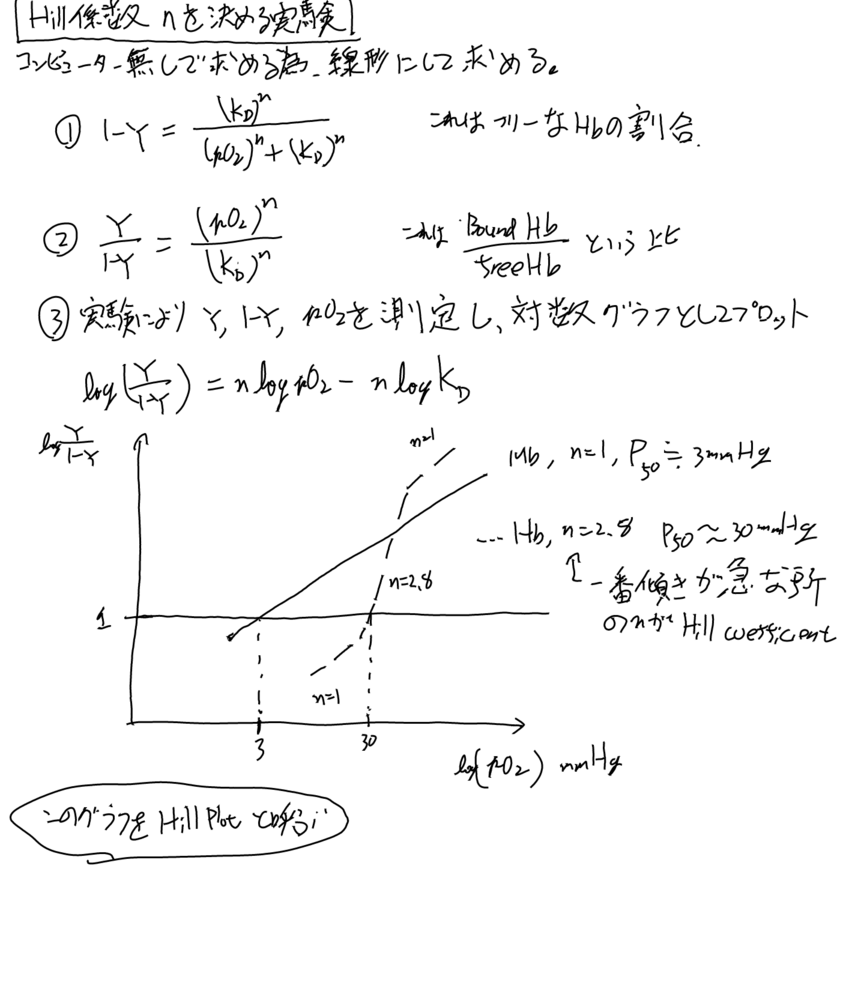 Hill係数 nを決める実験
コンピューター無しで求める為、線形にして求める。
① 1-Y = (K_D)^n / ((pO2)^n + (K_D)^n) これはフリーなHbの割合.
② Y/(1-Y) = (pO2)^n / (K_D)^n これは Bound Hb / free Hb という比
③ 実験により Y, 1-Y, pO2を測定し、対数グラフとしてプロット
log(Y/(1-Y)) = n log pO2 - n log K_D
log Y/(1-Y)
n=1
Mb, n=1, P50≒3mmHg
... Hb, n=2.8 P50≈30mmHg
n=2.8
↑一番傾きが急な所
のnが Hill coefficient
1
n=1
3 30
log(pO2) mmHg
このグラフを Hill Plot と呼ぶ